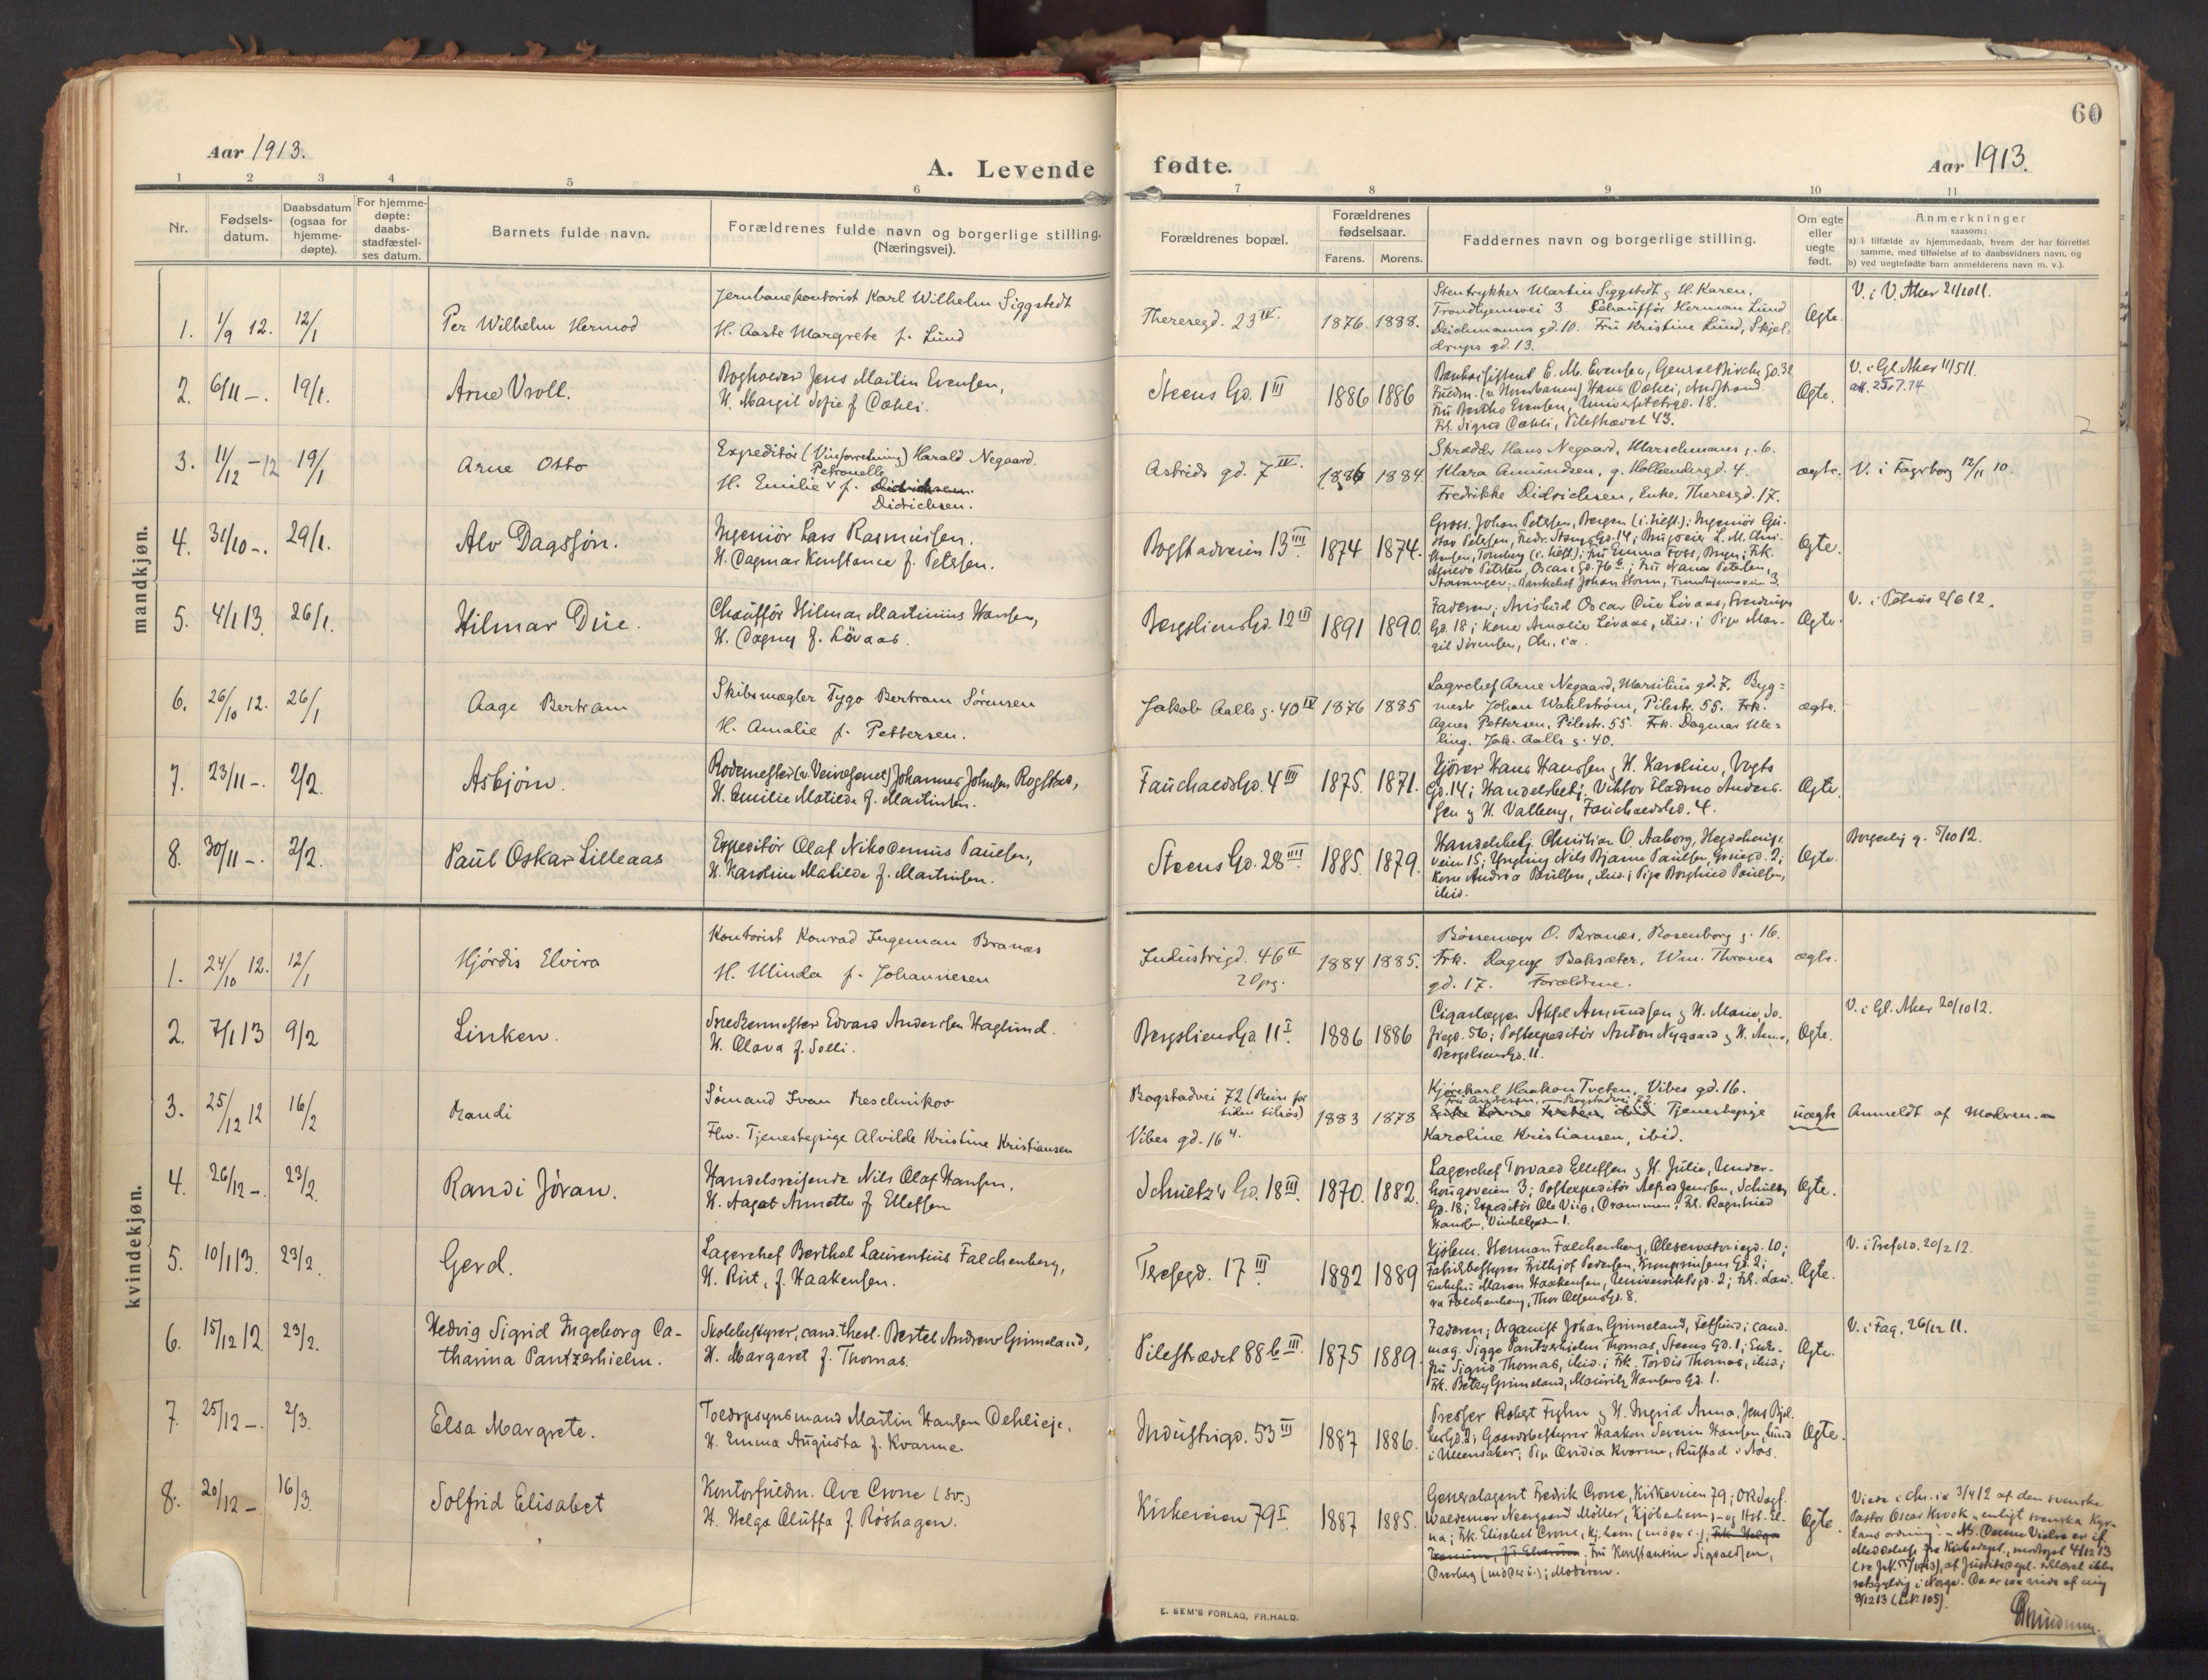 60
Aar 1913.
A. Levende
fødte.
Aar 1913.
1 2 3 4 5 6 7 8 9 10 11
Nr.
Fødsels-
datum.
Daabsdatum
(ogsaa for
hjemme-
døpte).
For hjemme-
døpte:
daabs-
stadfæstel-
ses datum.
Barnets fulde navn.
Forældrenes fulde navn og borgerlige stilling.
(Næringsvei).
Forældrenes bopæl.
Forældrenes
fødselsaar.
Farens. Morens.
Faddernes navn og borgerlige stilling.
Om egte
eller
uegte
født.
Anmerkninger
saasom:
a) i tilfælde av hjemmedaab, hvem der har forrettet
samme, med tilføielse af to daabsvidners navn, og
b) ved uegtefødte barn anmelderens navn m. v.).
mandkjøn.
1. 1/9 12. 12/1
Per Wilhelm Hermod
Jernbanekontorist Karl Wilhelm Siggstedt
H. Aaste Margrete f. Lund
Theresegd. 23 IV.
1876. 1888.
Stentrykker Martin Siggstedt og H. Karen.
Trondhjemsvei 3. Chauffør Herman Lund
Deichmanns gd. 10. Fru Kristine Lund, Skjel-
drups gd. 13.
Egte.
V. i V. Aker 21/10 11.
2. 6/11 -. 19/1.
Arne Vroll.
Bogholder Jens Martin Evensen,
H. Margit Sofie f.
Steens Gd. 1 III
1886 1886
Bankassistent E. M. Evensen,
Fru Bertha Evensen, Universitetsgd. 18.
Frk. Sigrid Pilestrædet 43.
Egte.
V. i Gl. Aker 11/5 11.
att. 25.7.74
3. 11/12 - 12 19/1
Arne Otto
Expeditør (Vinforretning) Harald Negaard.
Petronelle
H. Emilie f. Didrichsen.
Didrichsen.
Astrids gd. 7 IV.
1886 1884.
Skrædder Hans Negaard, Marschmanns g. 6.
Klara Amundsen, g. Hollendergd. 4.
Fredrikke Didrichsen, Enke, Theresegd. 17.
ægte.
V. i Fagerborg 12/11 10.
4. 31/10 -. 29/1.
Alv Dagssjøn.
Ingeniør Lars Rasmussen.
H. Dagmar Konstance f. Petersen.
Bogstadveien 13 III.
1874 1874.
Gross. Johan Petersen, Bergen (i. tilst.); Ingeniør
Petersen, Fredr. Stangs Gd. 14; L. M.
Tønsberg (i. tilst.); Fru Emma Foss, Bergen; Frk.
Petersen, Oscars Gd. 76 b; Fru Nana Petersen,
Stavanger; Bankchef Johan Storm, Trondhjemsveien 3.
Egte.
5. 4/1 13. 26/1.
Hilmar Due.
Chauffør Hilmar Martinius Hansen,
H. Dagny f. Løvaas.
Bergsliens Gd. 12 III
1891 1890.
Faderen; Oscar Due Løvaas,
Gd. 18; Kone Amalie Løvaas, ibid.; Pige Mar-
git Sørensen, Chr.ia.
Egte.
V. i Petrus 2/6 12.
6. 26/10 12. 26/1
Aage Bertram
Skibsmægler Tygo Bertram Sørensen
H. Amalie f. Pettersen.
Jakob Aalls g. 40 IV
1876 1885
Lagerchef Arne Negaard, Marsilius gd. 7. Byg-
mestr Johan Wahlstrøm, Pilestr. 55. Frk.
Agnes Pettersen, Pilestr. 55. Frk. Dagmar Ule-
ling. Jak. Aalls g. 40.
ægte.
7. 23/11 -. 2/2.
Asbjørn.
Rodemester (v. Veivæsenet) Johannes Johnsen Rogstad,
H. Emilie Matilde f. Martinsen.
Fauchalds Gd. 4 III
1875. 1871.
Kjører Hans Hanssen og H. Karoline, Vogts
Gd. 14; Handelsbetj. Viktor Anders-
sen og H. Valborg, Fauchalds Gd. 4.
Egte.
8. 30/11 -. 2/2.
Paul Oskar Lilleaas
Expeditør Olaf Nikodemus Paulsen,
H. Karoline Matilde f. Martinsen.
Steens Gd. 28 III.
1885. 1879.
Handelsbetj. Christian O. Aaborg, Hegdehaugs-
veien 15; Yngling Nils Bjarne Paulsen, 2;
Kone Andrea Paulsen, ibid.; Pige Borghild Paulsen,
ibid.
Egte.
Borgerlig g. 5/10 12.
kvindekjøn.
1. 24/10 12. 12/1
Hjørdis Elvira
Kontorist Konrad Ingeman Branæs
H. Minda f. Johannesen
Industrigd. 46 II
2 Opg.
1884 1885.
Bøssemager O. Branæs, Rosenborg g. 16.
Frk. Dagny Baksæter, Wm. Thranes
gd. 17. Forældrene.
ægte.
2. 7/1 13 9/2
Linken.
Snedkermester Edvard Andersen Haglund.
H. Olava f. Solli.
Bergsliens Gd. 11 I.
1886 1886
Cigarlægger Aksel Amundsen og H. Marie, So-
fiegd. 56; Postexpeditør Anton Nygaard og H. Anna,
Bergsliens Gd. 11.
Egte.
V. i Gl. Aker 20/10 12.
3. 25/12 12 16/2
Randi
Sømand Ivan Reschnikov
Flv. Tjenestepige Alvilde Kristine Kristiansen
Bogstadvei 72 (Reise for
tiden tilsjøs)
Vibes gd. 16 4.
1883 1878
Kjørekarl Haakon Tveten, Vibes gd. 16.
Fru Andersen, Bogstadvei 72.
Tjenestepige
Karoline Kristiansen, ibid.
uægte
Anmeldt af Moderen. -
4. 26/12 -. 23/2.
Randi Jøran.
Handelsreisende Nils Olaf Hansen,
H. Aagot Annette f. Ellefsen
Schultz's Gd. 18 III.
1870. 1882.
Lagerchef Torvald Ellefsen og H. Julie, Under-
haugsveien 3; Postexpeditør Alfred Jensen, Schultz
Gd. 18; Expeditør Ole Viig, Drammen; Frk. Ragnhild
Hansen, Vinkelgaden 1.
Egte.
5. 10/1 13. 23/2.
Gerd.
Lagerchef Berthol Laurentius Falchenberg,
H. Rut, f. Haakensen.
Teresegd. 17 III
1882 1889
Kjøbm. Herman Falchenberg, Observatoriegd. 10;
Fabrikbestyrer Frithjof Pedersen, Kronprinsens Gd. 2;
Enkefru Maren Haakensen, Universitetsgd. 2; Frk. Lau-
ra Falchenberg, Thor Olsens Gd. 8.
Egte.
V. i Trefold. 20/2 12.
6. 15/12 12. 23/2.
Hedvig Sigrid Ingeborg Ca-
tharina Pantzerhielm.
Skolebestyrer, cand. theol. Bertel Andrew Grimeland,
H. Margaret f. Thomas.
Pilestrædet 88 b III.
1875 1889.
Faderen; Organist Johan Grimeland, Fetsund; cand.
mag. Sigge Pantzerhielm Thomas, Steens Gd. 1; Enke-
fru Sigrid Thomas, ibid.; Frk. Tordis Thomas, ibid.;
Frk. Betzy Grimeland, Mauritz Hansens Gd. 1.
Egte.
V. i Fag. 26/12 11.
7. 25/12 -. 2/3.
Elsa Margrete.
Toldopsynsmand Martin Hansen Dehlieje,
H. Emma Augusta f. Kvarme.
Industrigd. 53 III
1887 1886.
Presser Robert Fyhn og H. Ingrid Anna, Jens Bjel-
kes Gd. 2; Gaardsbestyrer Haakon Severin Hansen, Lund
i Ullensaker; Pige Ovidia Kvarme, Rustad i Aas.
Egte.
8. 20/12 - 16/3.
Solfrid Elisabet
Kontorfuldm. Ove Crone (sv.)
H. Helga Oluffa f. Røshagen.
Kirkeveien 79 I.
1887 1885.
Generalagent Fredrik Crone, Kirkeveien 79;
Waldemar Neergaard Møller, Kjøbenhavn, og Hst. El-
na; Frk. Elisabet Crone, Kj.havn (m. o. p. e. i.); Frk. Helga
Fru Konstantine Sigvaldsen,
Moderen.
Egte.
Viede i Chr.ia 3/4 12 af den svenske
Pastor Oscar Krook „enligt svenska Kyr-
kans ordning". - NB. Denne Vielse er if.
Meddelelse fra Kirkedept., modtaget 4/12 13
af Justitsdept. erklæret ikke
retsgyldig i Norge. De er nu viede af mig
9/12 13 (L.Nr. 105).
E. SEM'S FORLAG, FR.HALD.